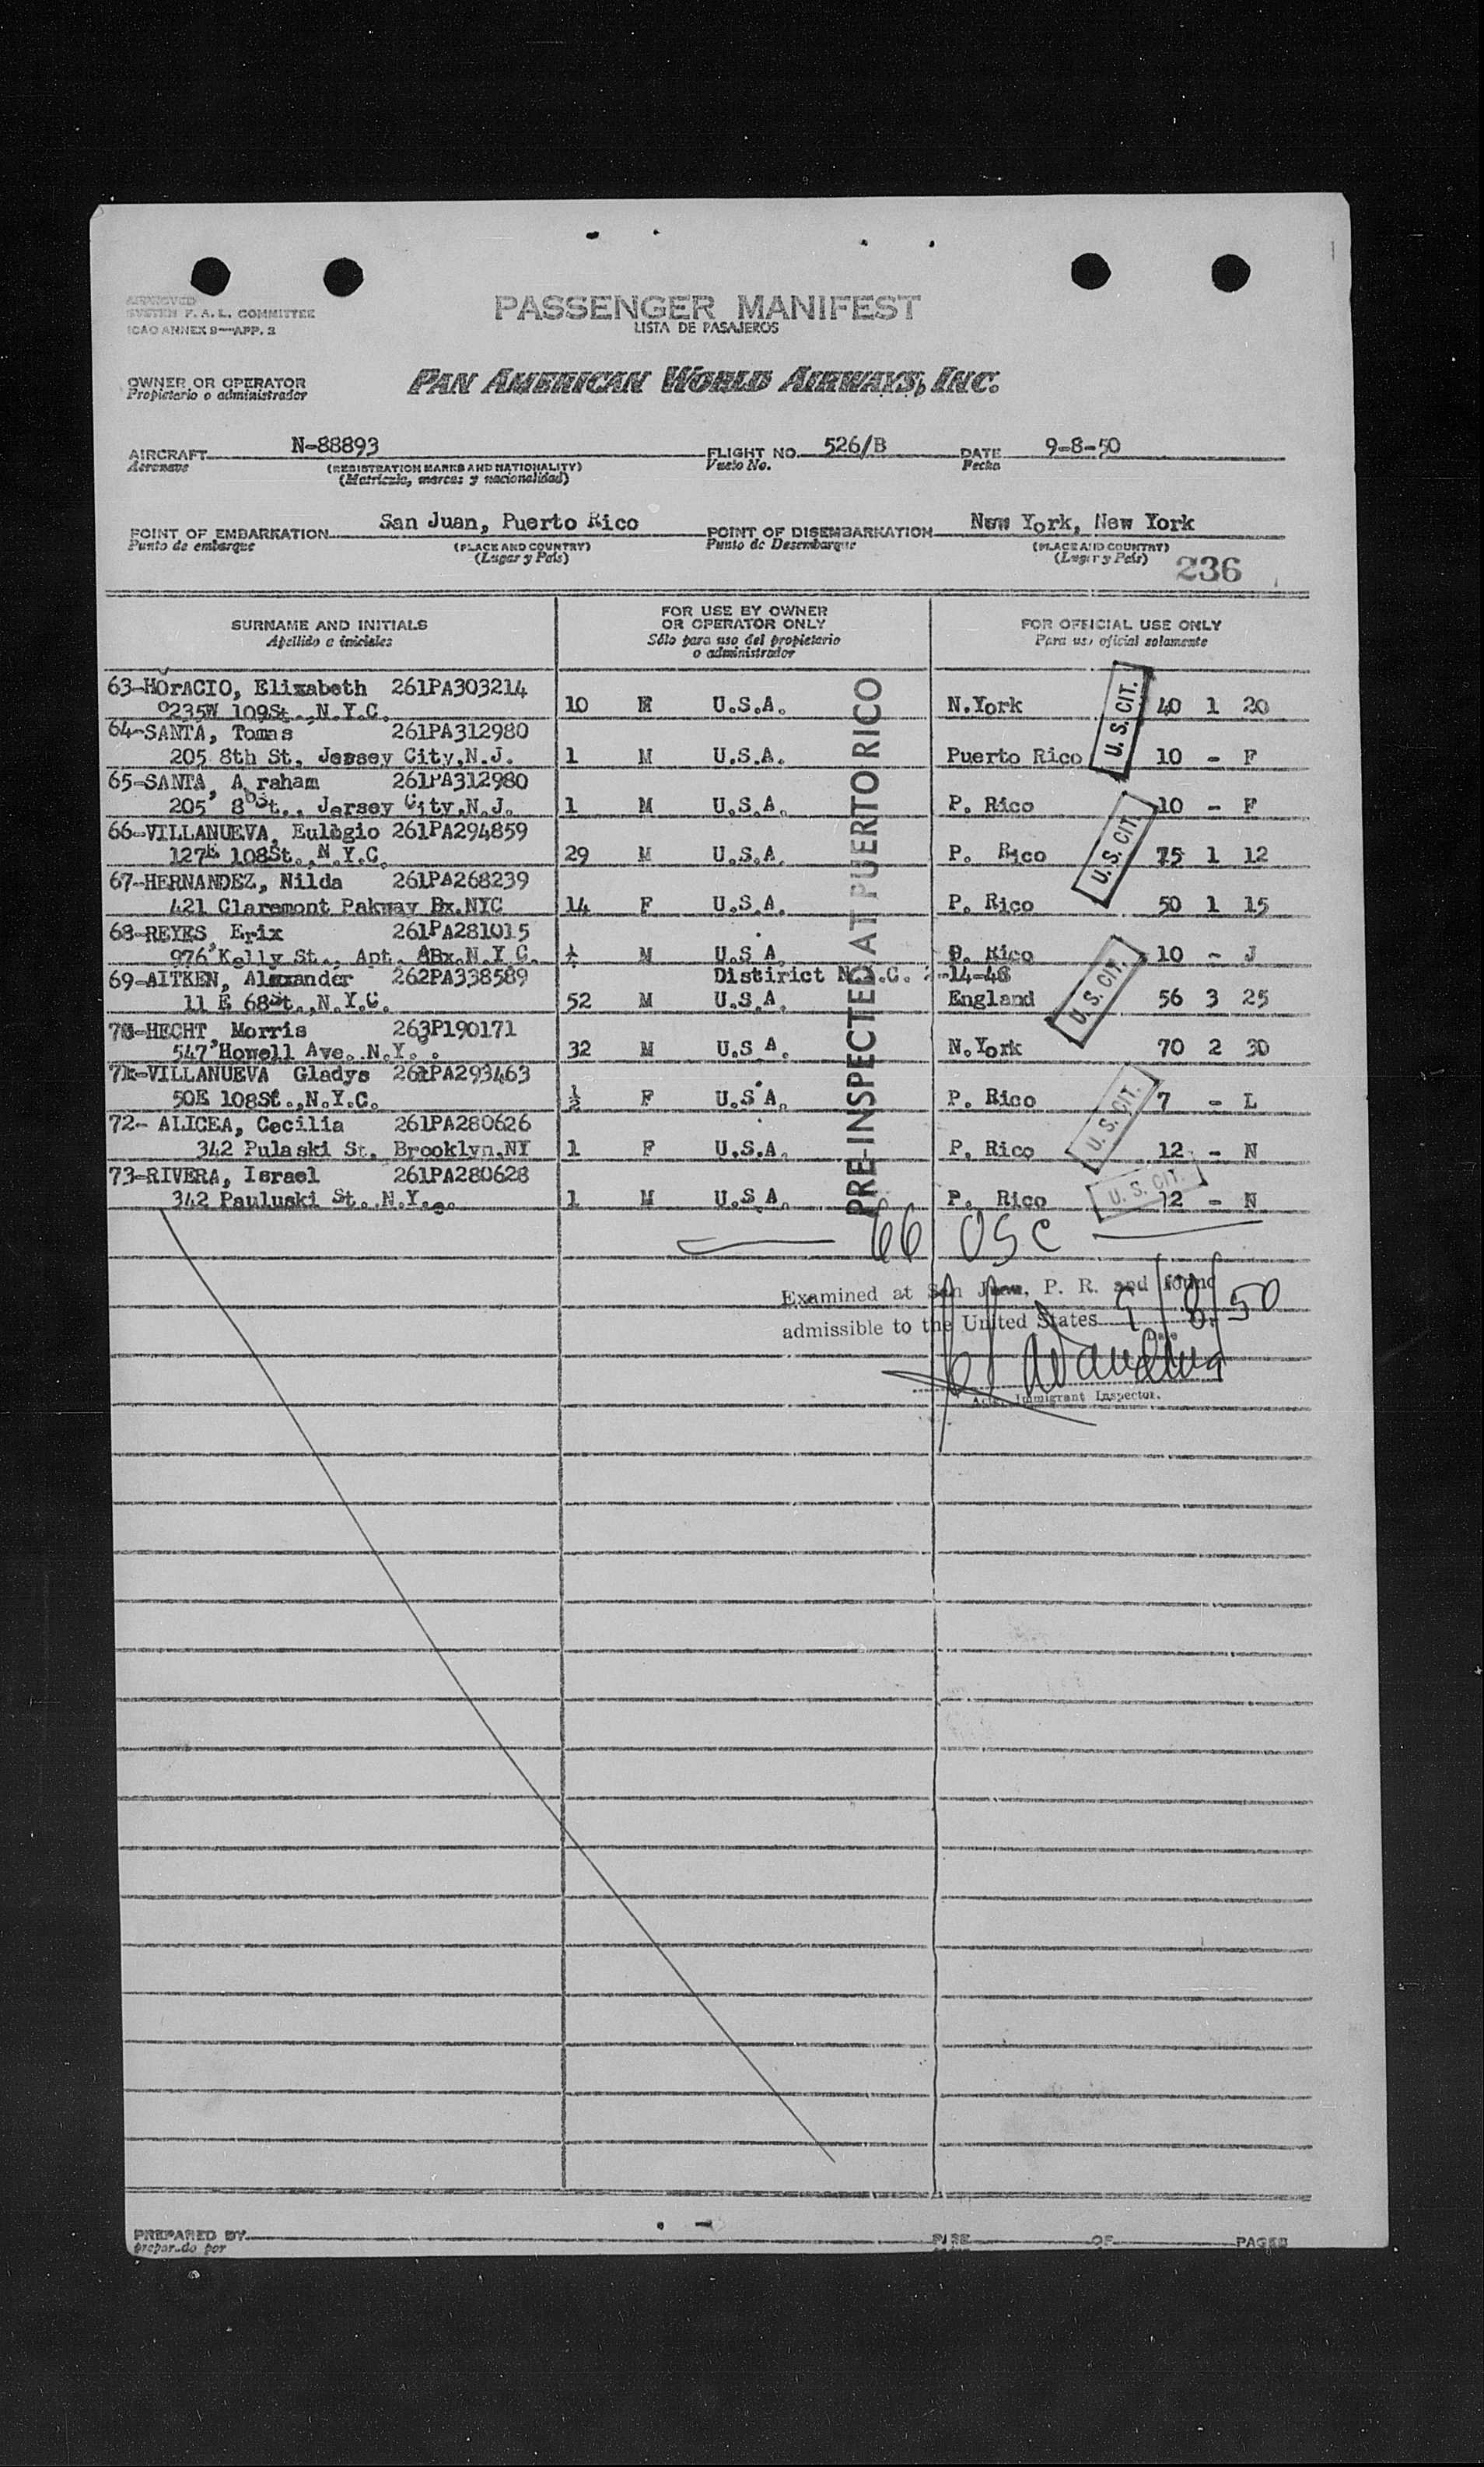 APPROVED
SYSTEM F. A. L. COMMITTEE
ICAO ANNEX 9—APP. 2
PASSENGER MANIFEST
LISTA DE PASAJEROS
OWNER OR OPERATOR
Propietario o administrador
PAN AMERICAN WORLD AIRWAYS, INC.
AIRCRAFT N-88893 FLIGHT NO. 526/B DATE 9-8-50
Aeronave (REGISTRATION MARKS AND NATIONALITY) Vuelo No. Fecha
(Matricula, marcas y nacionalidad)
POINT OF EMBARKATION San Juan, Puerto Rico POINT OF DISEMBARKATION New York, New York
Punto de embarque (PLACE AND COUNTRY) Punto de Desembarque (PLACE AND COUNTRY)
(Lugar y País) (Lugar y País) 236
SURNAME AND INITIALS FOR USE BY OWNER OR OPERATOR ONLY FOR OFFICIAL USE ONLY
Apellido e iniciales Sólo para uso del propietario o administrador Para uso oficial solamente
63-HOrACIO, Elizabeth 261PA303214
235W 109St.,N.Y.C. 10 U.S.A. N.York 40 1 20
64-SANTA, Tomas 261PA312980
205 8th St, Jersey City,N.J. 1 M U.S.A. Puerto Rico 10 - F
65-SANTA, A raham 261PA312980
205 8 St., Jersey City,N.J. 1 M U.S.A. P. Rico 10 - F
66-VILLANUEVA, Eulogio 261PA294859
127E 108St.,N.Y.C. 29 M U.S.A. P. Rico 75 1 12
67-HERNANDEZ, Nilda 261PA268239
421 Claremont Pakway Bx.NYC 14 F U.S.A. P. Rico 50 1 15
68-REYES, Erix 261PA281015
976 Kelly St., Apt. Bx.N.Y.C. M U.S.A. P. Rico 10 - J
69-AITKEN, Alexander 262PA338589 Distirict N.Y.C. 2-14-46
11 E 68St.,N.Y.C. 52 M U.S.A. England 56 3 25
70-HECHT, Morris 263P190171
547 Howell Ave. N.Y. 32 M U.S.A. N.York 70 2 30
71-VILLANUEVA Gladys 261PA293463
50E 108St.,N.Y.C. ½ F U.S.A. P. Rico 7 - L
72- ALICEA, Cecilia 261PA280626
342 Pulaski St. Brooklyn,NY 1 F U.S.A. P. Rico 12 - N
73-RIVERA, Israel 261PA280628
342 Pauluski St. N.Y. 1 M U.S.A. P. Rico 12 - N
PRE-INSPECTED AT PUERTO RICO
U. S. CIT.
U. S. CIT.
U. S. CIT.
U. S. CIT.
U. S. CIT.
66 USC
Examined at San Juan, P. R. and found
admissible to the United States 9/8/50
Date
Immigrant Inspector.
PREPARED BY PAGE OF PAGES
preparado por